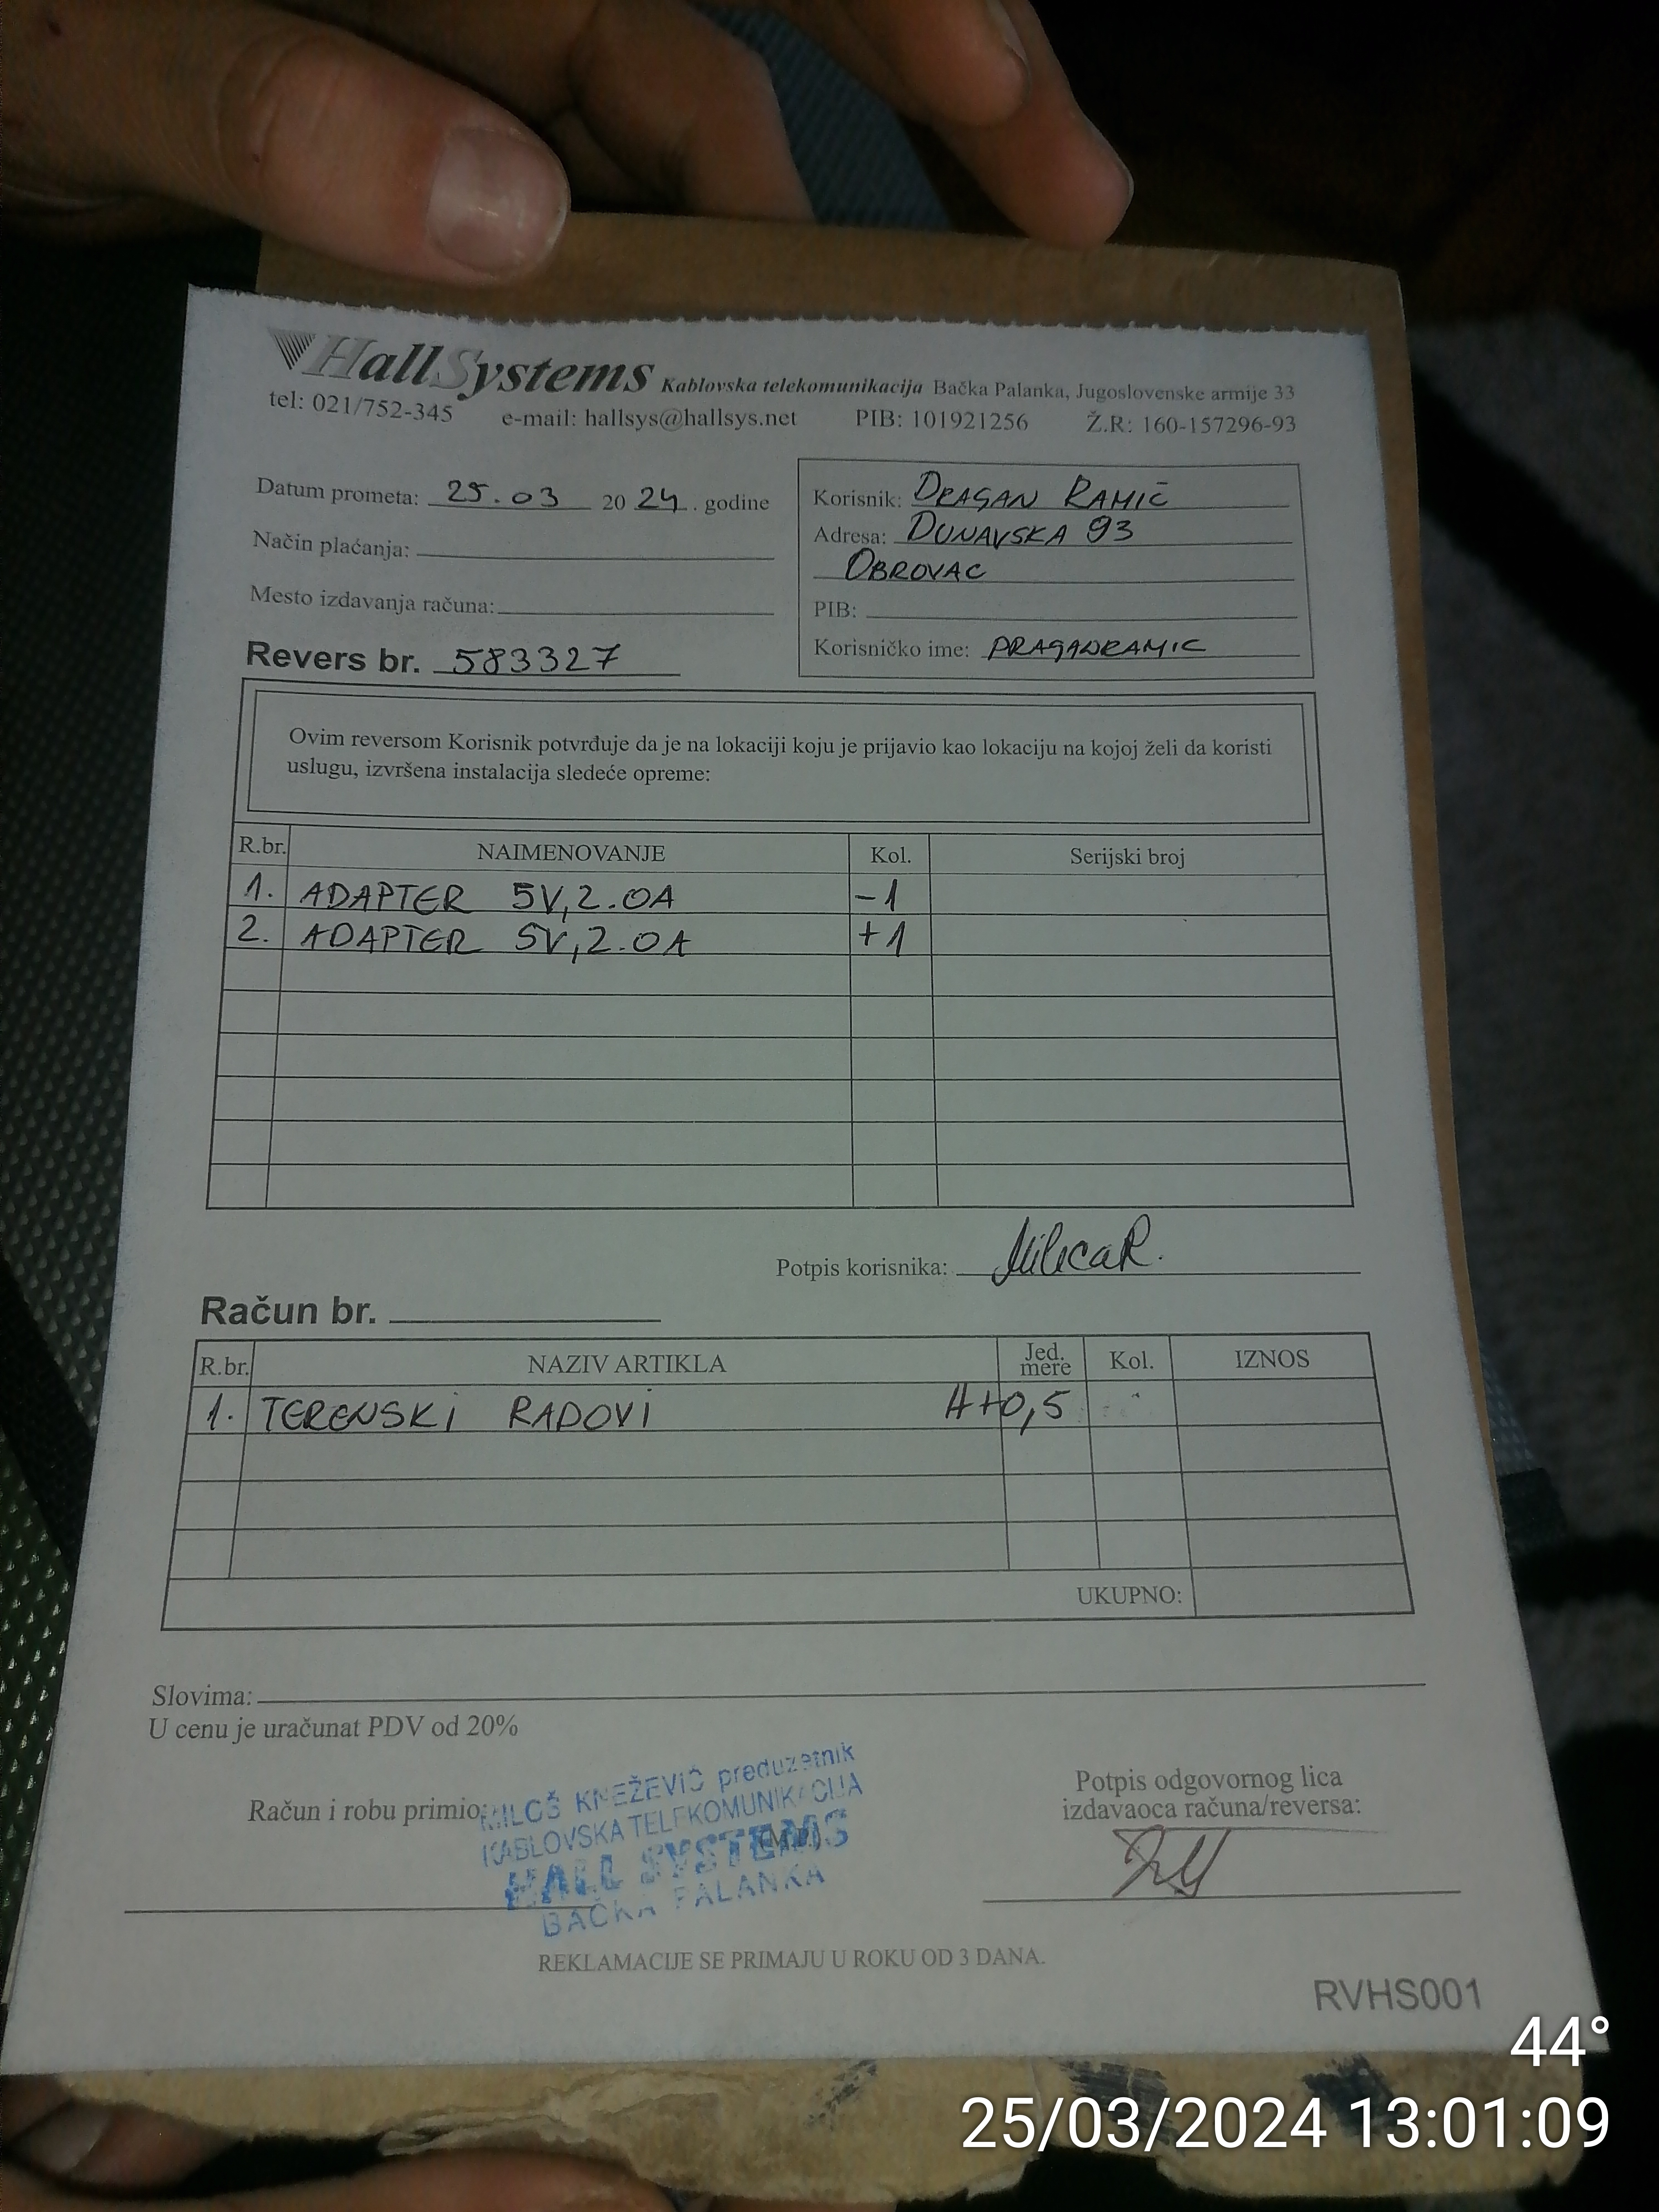 HallSystems Kablovska telekomunikacija Bačka Palanka, Jugoslovenske armije 33
tel: 021/752-345 e-mail: hallsys@hallsys.net PIB: 101921256 Ž.R: 160-157296-93
Datum prometa: 25.03 2024. godine
Način plaćanja:
Mesto izdavanja računa:
Revers br. 583327
Korisnik: DRAGAN RAMIĆ
Adresa: DUNAVSKA 93
OBROVAC
PIB:
Korisničko ime: DRAGANRAMIC
Ovim reversom Korisnik potvrđuje da je na lokaciji koju je prijavio kao lokaciju na kojoj želi da koristi
uslugu, izvršena instalacija sledeće opreme:
R.br. NAIMENOVANJE Kol. Serijski broj
1. ADAPTER 5V,2.0A -1
2. ADAPTER 5V,2.0A +1
Potpis korisnika: Milica R.
Račun br.
R.br. NAZIV ARTIKLA Jed. mere Kol. IZNOS
1. TERENSKI RADOVI H+0,5
UKUPNO:
Slovima:
U cenu je uračunat PDV od 20%
Račun i robu primio:
MILOŠ KNEŽEVIĆ preduzetnik
KABLOVSKA TELEKOMUNIKACIJA
HALL SYSTEMS
BAČKA PALANKA
(M.P.)
Potpis odgovornog lica
izdavaoca računa/reversa:
REKLAMACIJE SE PRIMAJU U ROKU OD 3 DANA.
RVHS001
44°
25/03/2024 13:01:09